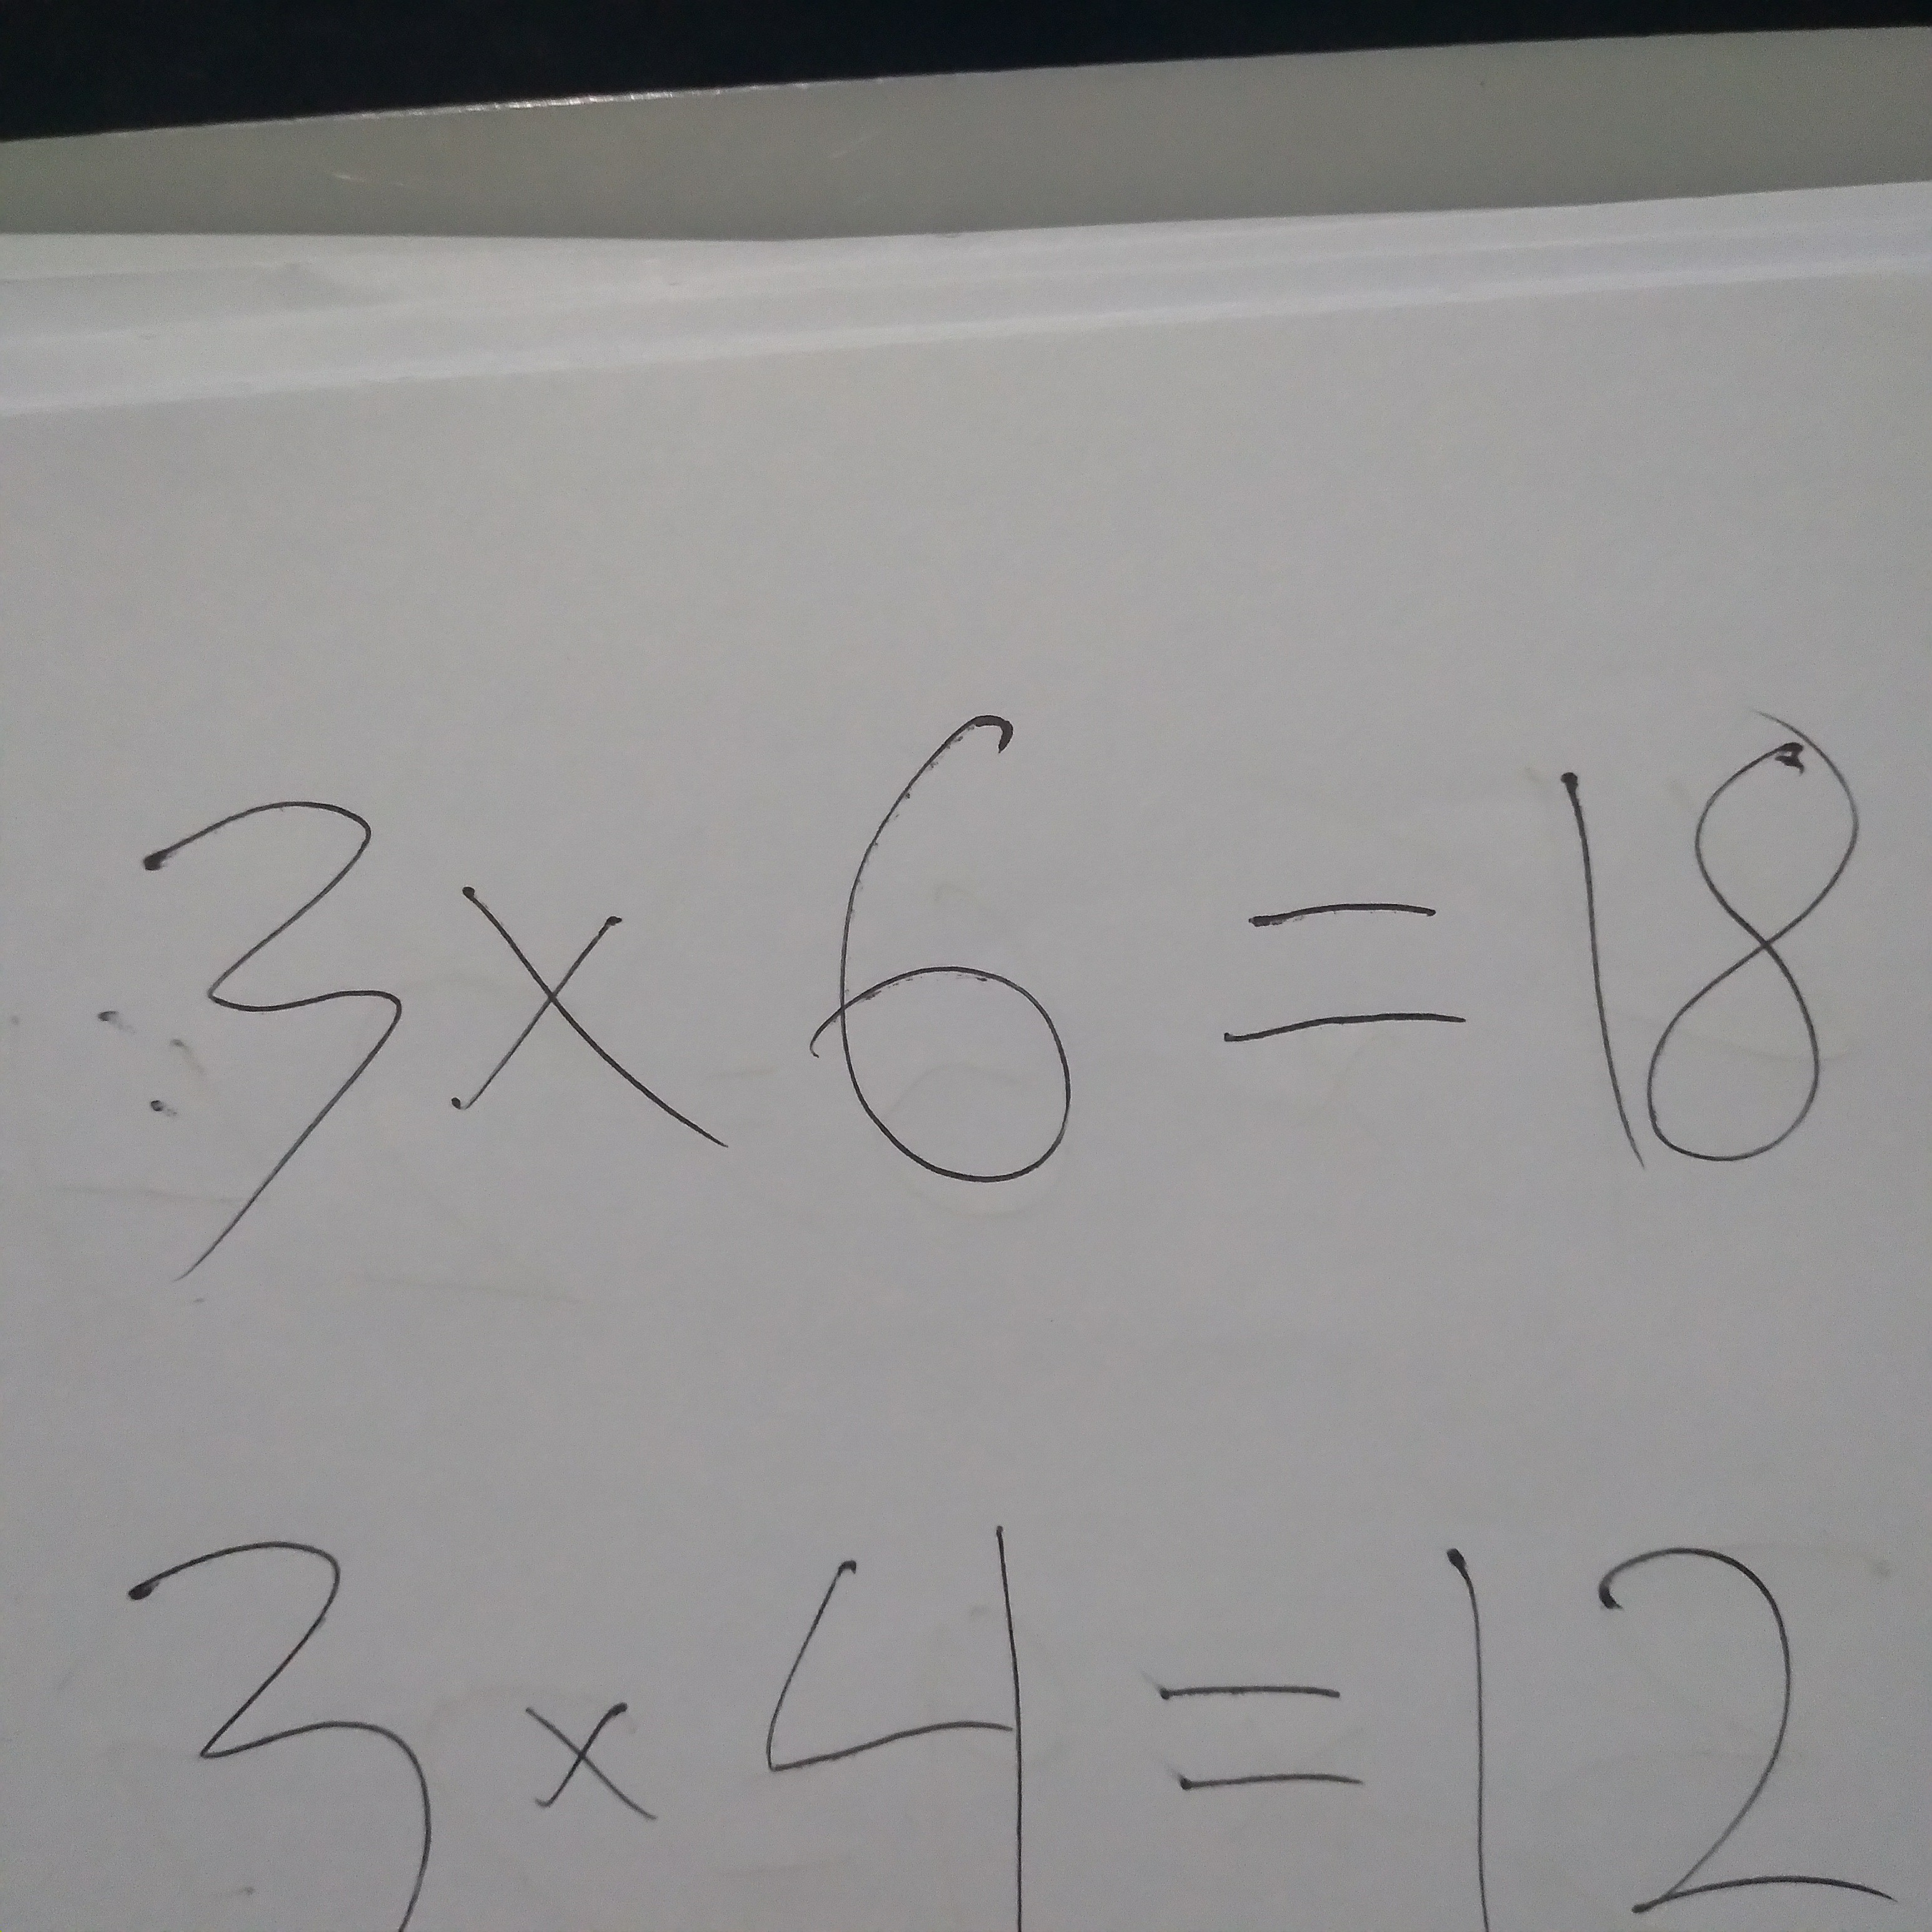 3 x 6 = 18
3 x 4 = 12